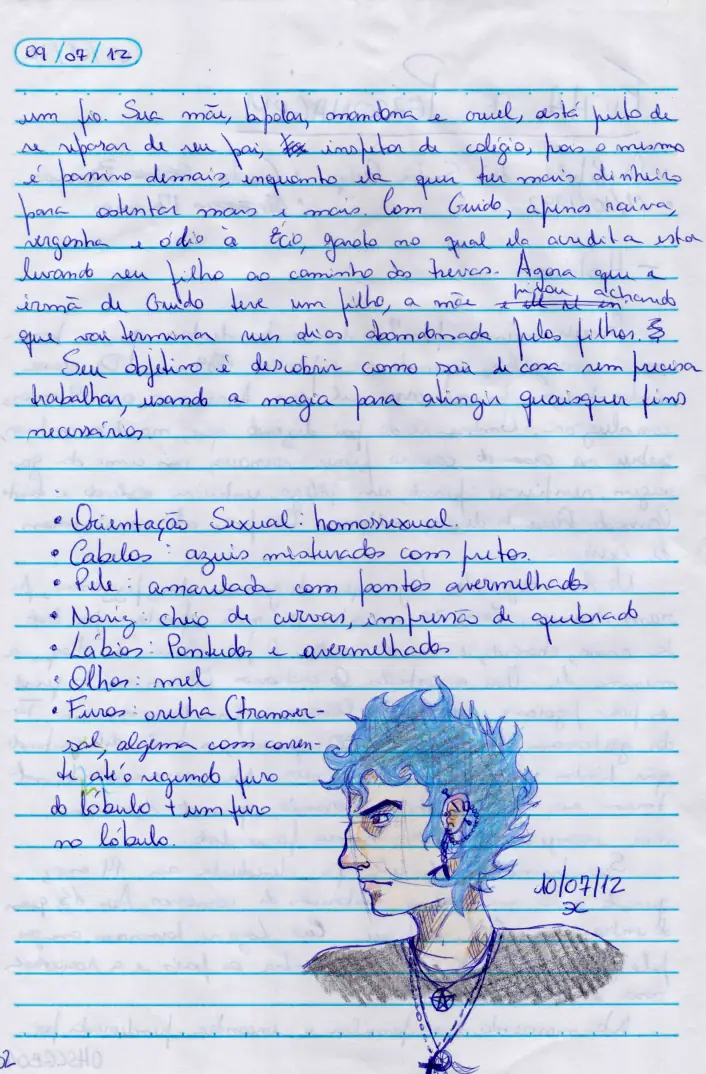 09/07/12
um fio. Sua mãe, bipolar, mandona e cruel, está perto de
se separar de seu pai, inspetor de colégio, pois o mesmo
é passivo demais, enquanto ela quer ter mais dinheiro
para ostentar mais e mais. Com Guido, apenas raiva,
vergonha e ódio à Écio, garoto no qual ela acredita estar
levando seu filho ao caminho das trevas. Agora que a
irmã de Guido teve um filho, a mãe pirou achando
que vai terminar seus dias abandonada pelos filhos.
Seu objetivo é descobrir como sair de casa sem precisar
trabalhar, usando a magia para atingir quaisquer fins
necessários.
• Orientação Sexual: homossexual.
• Cabelos: azuis misturados com pretos.
• Pele: amarelada com pontos avermelhados
• Nariz: cheio de curvas, impressão de quebrado
• Lábios: Pontudos e avermelhados
• Olhos: mel
• Furos: orelha (transver-
sal, algema com corren-
te) até o segundo furo
do lóbulo + um furo
no lóbulo.
10/07/12